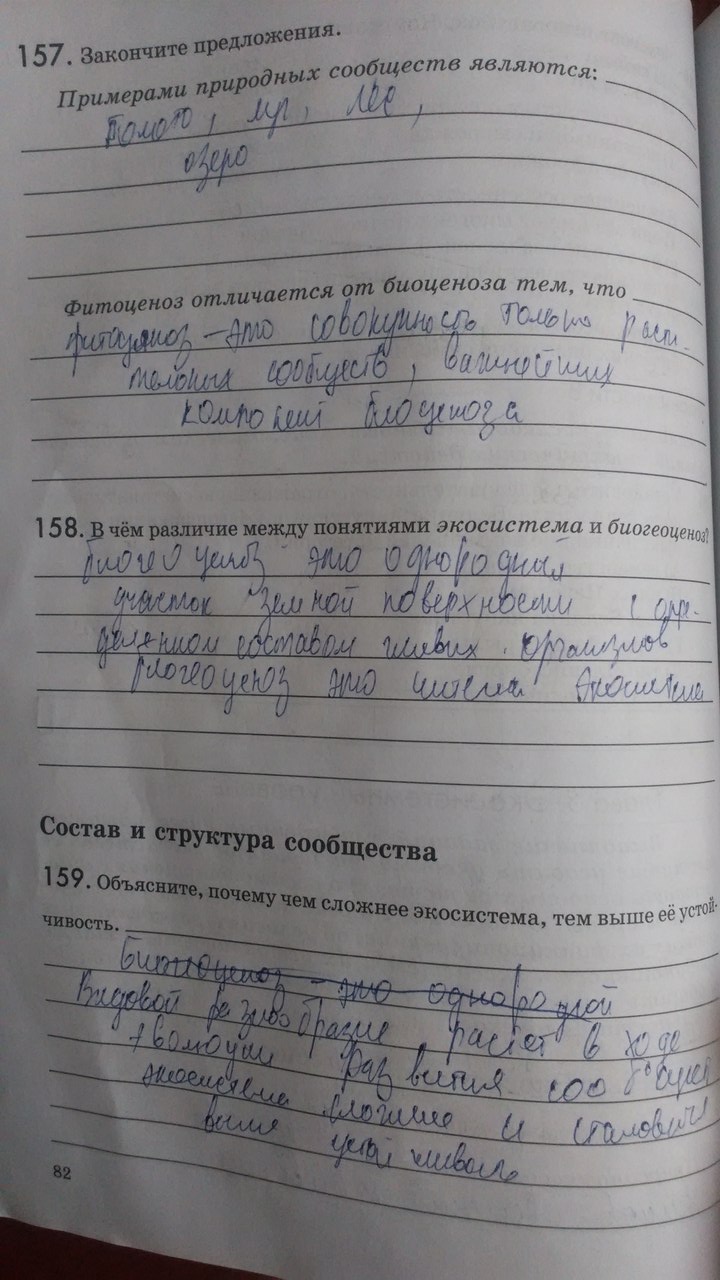 157. Закончите предложения.
Примерами природных сообществ являются:
Болото, луг, лес,
озеро
Фитоценоз отличается от биоценоза тем, что
фитоценоз – это совокупность только расти-
тельных сообществ, важнейших
компонент биоценоза
158. В чём различие между понятиями экосистема и биогеоценоз?
биогеоценоз это однородный
участок земной поверхности с опре-
деленном составом живых организмов
биогеоценоз это экосистема
Состав и структура сообщества
159. Объясните, почему чем сложнее экосистема, тем выше её устой-
чивость.
Биогеоценоз – это однородной
Видовой разнообразие растет в ходе
эволюции развития
экосистема и становится
выше
82